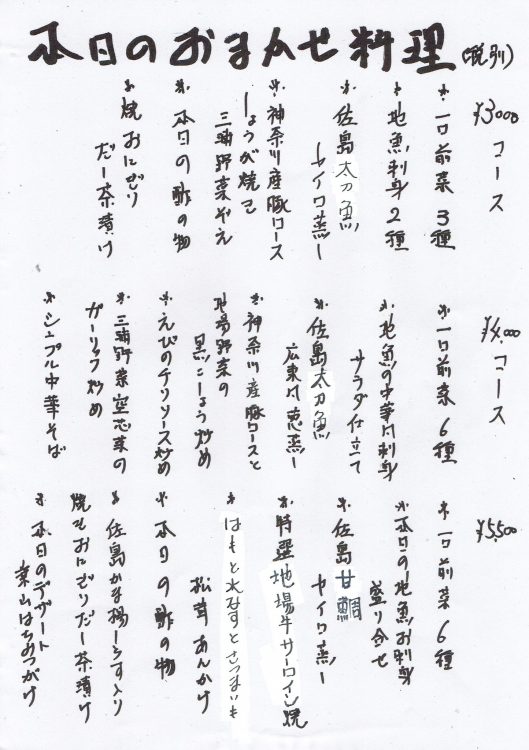 本日のおまかせ料理(税別)
¥3000コース
*一口前菜3種
*地魚刺身2種
*佐島太刀魚
セイロ蒸し
*神奈川産豚ロース
しょうが焼き
三浦野菜ぞえ
*本日の酢の物
*焼おにぎり
だし茶漬け
¥4,000コース
*一口前菜6種
*地魚の中華風刺身
サラダ仕立て
*佐島太刀魚
広東風葱蒸し
*神奈川産豚ロースと
地場野菜の
黒こしょう炒め
*えびのチリソース炒め
*三浦野菜空芯菜の
ガーリック炒め
*シンプル中華そば
¥5,500
*一口前菜6種
*本日の地魚お刺身
盛り合せ
*佐島甘鯛
セイロ蒸し
*特選地場牛サーロイン焼
*はもと水なすとさつまいも
松茸あんかけ
*本日の酢の物
*佐島かま揚しらす入り
焼きおにぎりだし茶漬け
*本日のデザート
葉山はちみつがけ